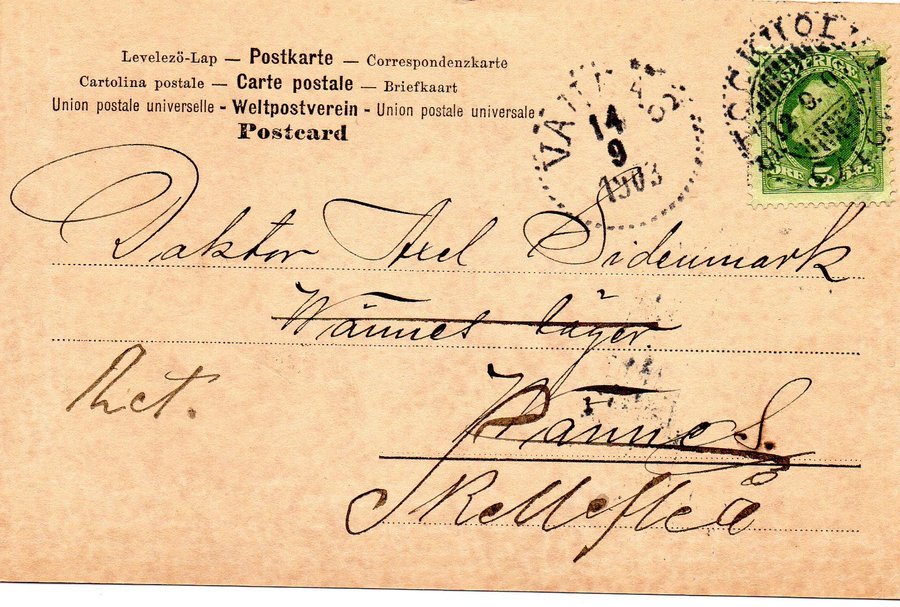 Levelező-Lap — Postkarte — Correspondenzkarte
Cartolina postale — Carte postale — Briefkaart
Union postale universelle - Weltpostverein - Union postale universale
Postcard
14
9
1903
SVERIGE
Doktor Axel Sidenmark
Wännes läger
Ret.
Wännes.
Skellefteå